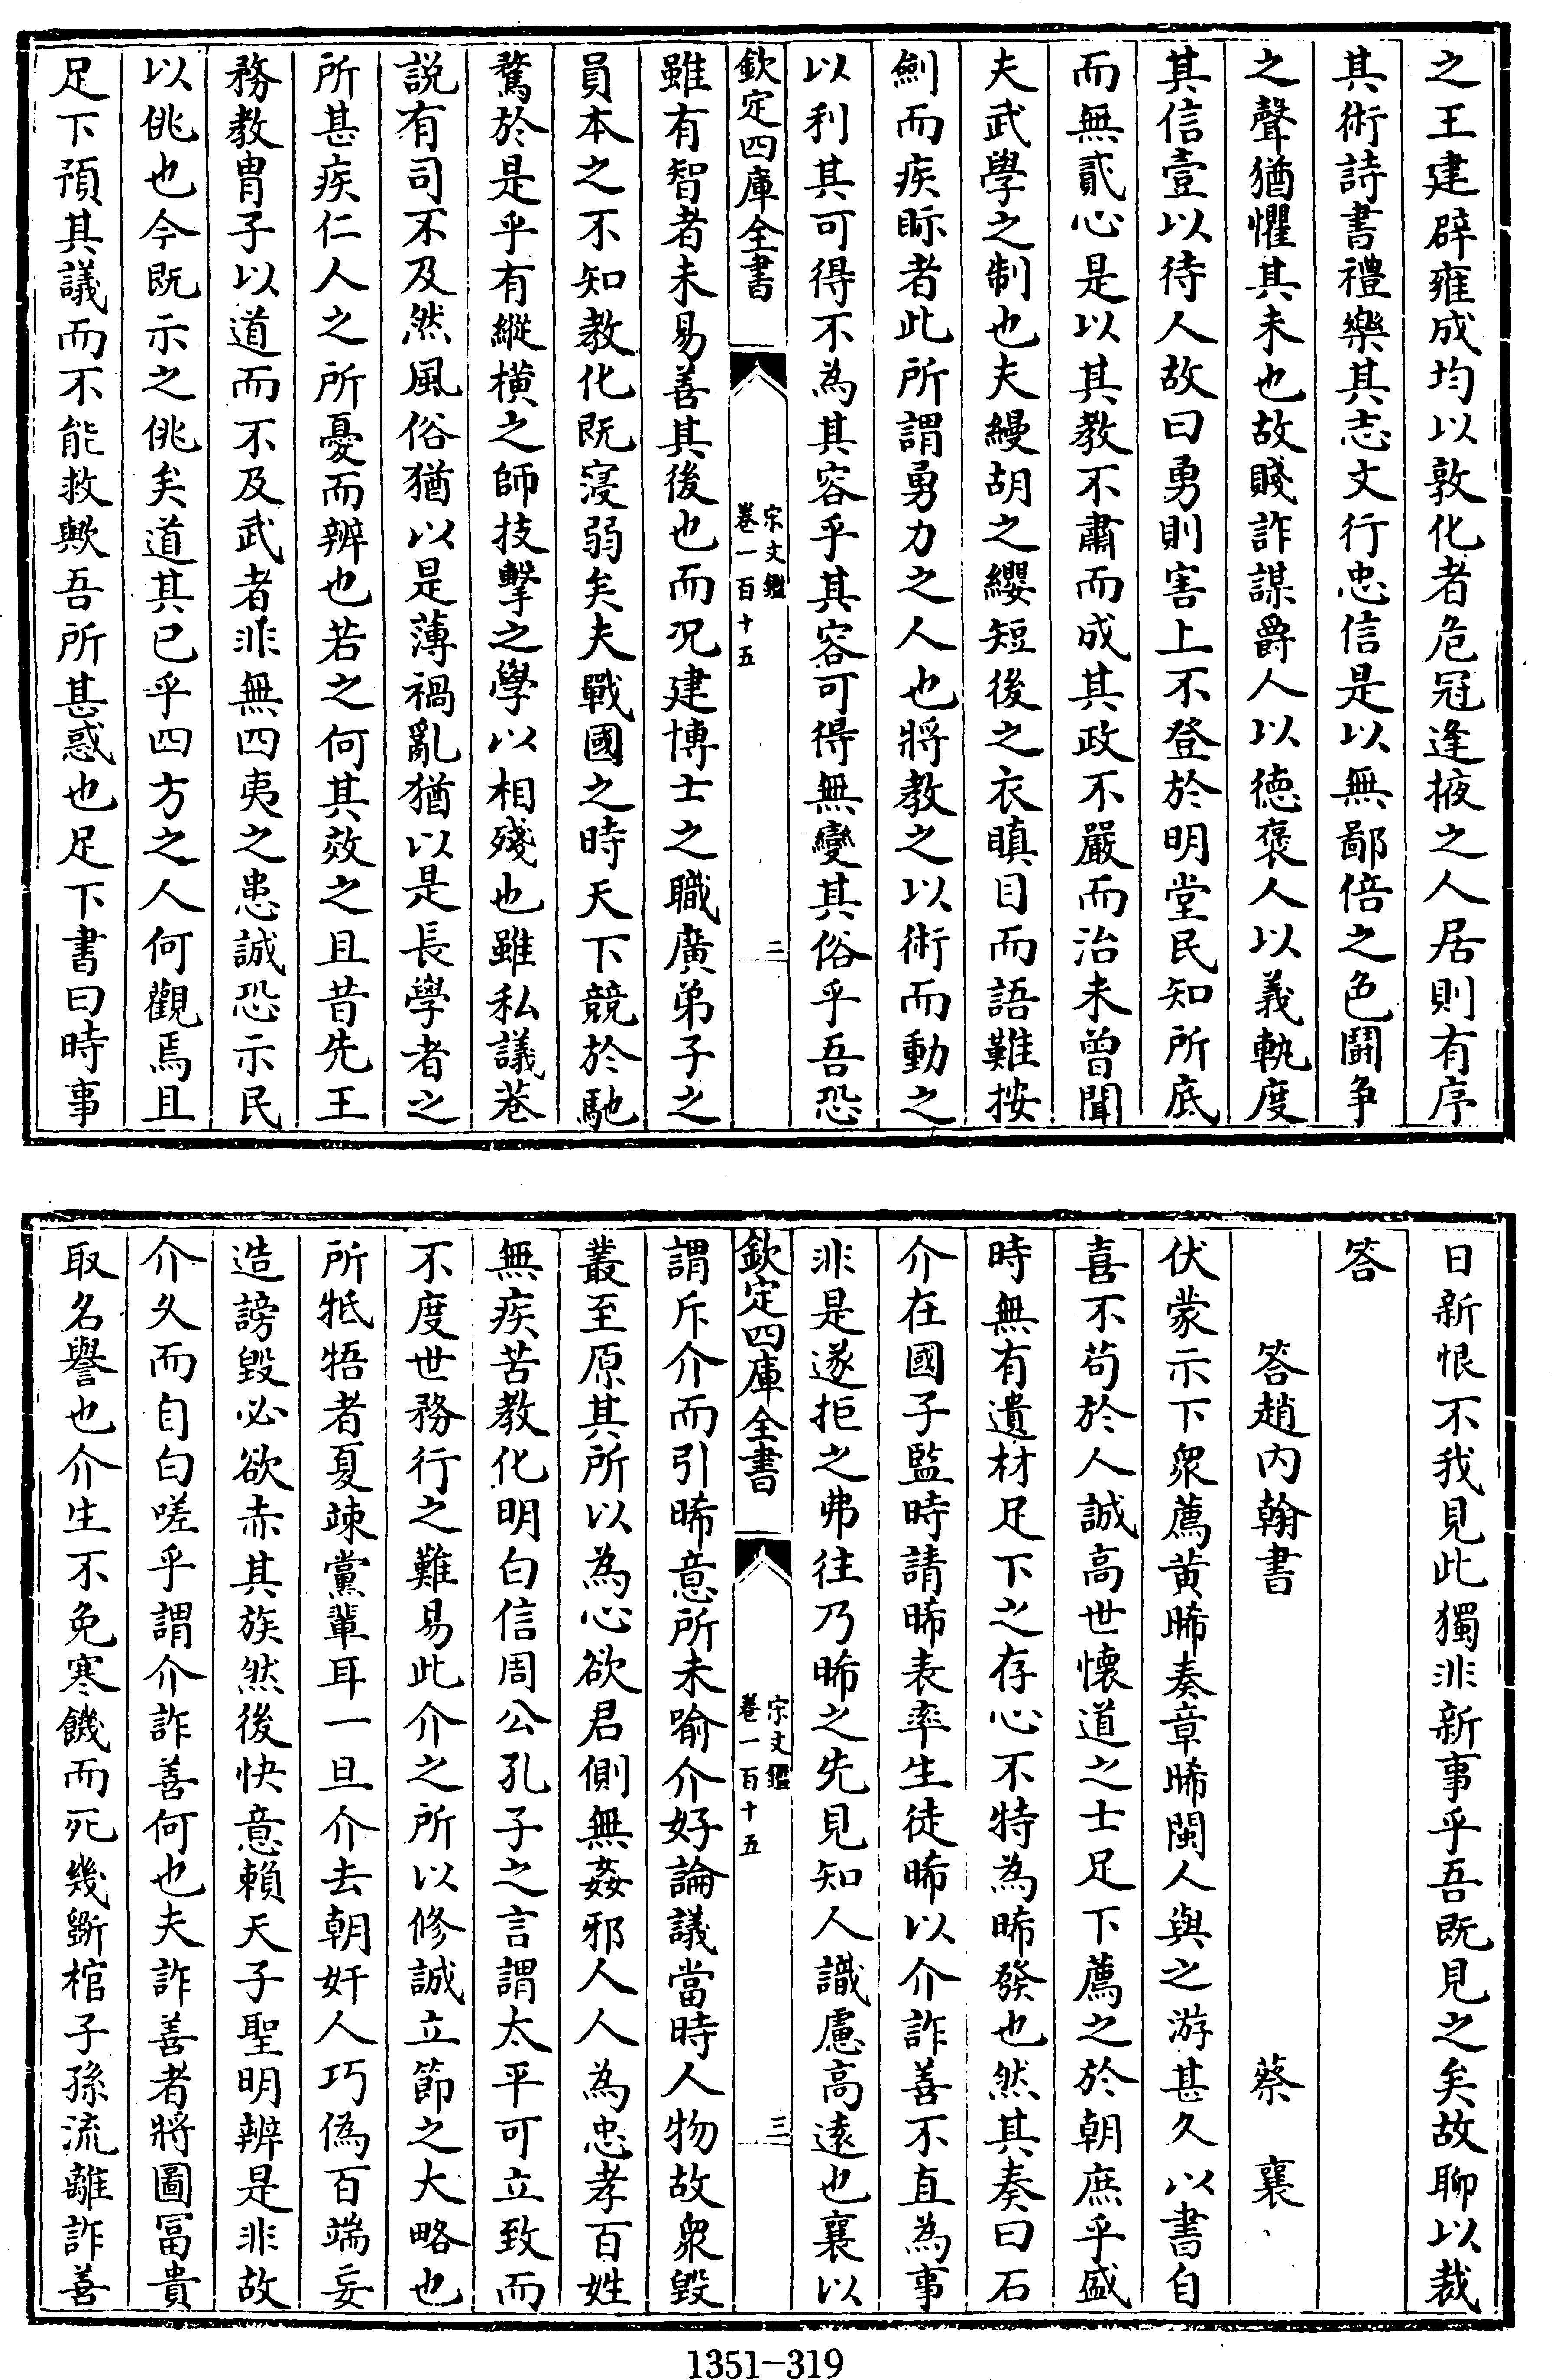 之王建辟雍成均以敦化者危冠逢掖之人居則有序
其術詩書禮樂其志文行忠信是以無鄙倍之色鬬争
之聲猶懼其未也故賤詐謀爵人以徳褒人以義軌度
其信壹以待人故曰勇則害上不登於明堂民知所底
而無貳心是以其教不肅而成其政不嚴而治未曽聞
夫武學之制也夫縵胡之纓短後之衣瞋目而語難按
劍而疾眎者此所謂勇力之人也將教之以術而動之
以利其可得不為其容乎其容可得無變其俗乎吾恐
欽定四庫全書
宋文鑑
卷一百十五
二
雖有智者未易善其後也而况建博士之職廣弟子之
員本之不知教化既寖弱矣夫戰國之時天下競於馳
騖於是乎有縱橫之師技擊之學以相殘也雖私議巷
説有司不及然風俗猶以是薄禍亂猶以是長學者之
所甚疾仁人之所憂而辨也若之何其效之且昔先王
務教胄子以道而不及武者非無四夷之患誠恐示民
以佻也今既示之佻矣道其已乎四方之人何觀焉且
足下預其議而不能救歟吾所甚惑也足下書曰時事
日新恨不我見此獨非新事乎吾既見之矣故聊以裁
答
答趙内翰書 蔡襄
伏蒙示下衆薦黄晞奏章晞閩人與之游甚久以書自
喜不苟於人誠高世懐道之士足下薦之於朝庶乎盛
時無有遺材足下之存心不特為晞發也然其奏曰石
介在國子監時請晞表率生徒晞以介詐善不直為事
非是遂拒之弗往乃晞之先見知人識慮高逺也襄以
欽定四庫全書
宋文鑑
卷一百十五
三
謂斥介而引晞意所未喻介好論議當時人物故衆毀
叢至原其所以為心欲君側無姦邪人人為忠孝百姓
無疾苦教化明白信周公孔子之言謂太平可立致而
不度世務行之難易此介之所以修誠立節之大略也
所牴牾者夏竦黨輩耳一旦介去朝奸人巧偽百端妄
造謗毀必欲赤其族然後快意賴天子聖明辨是非故
介久而自白嗟乎謂介詐善何也夫詐善者將圖富貴
取名譽也介生不免寒饑而死幾斵棺子孫流離詐善
1351-319